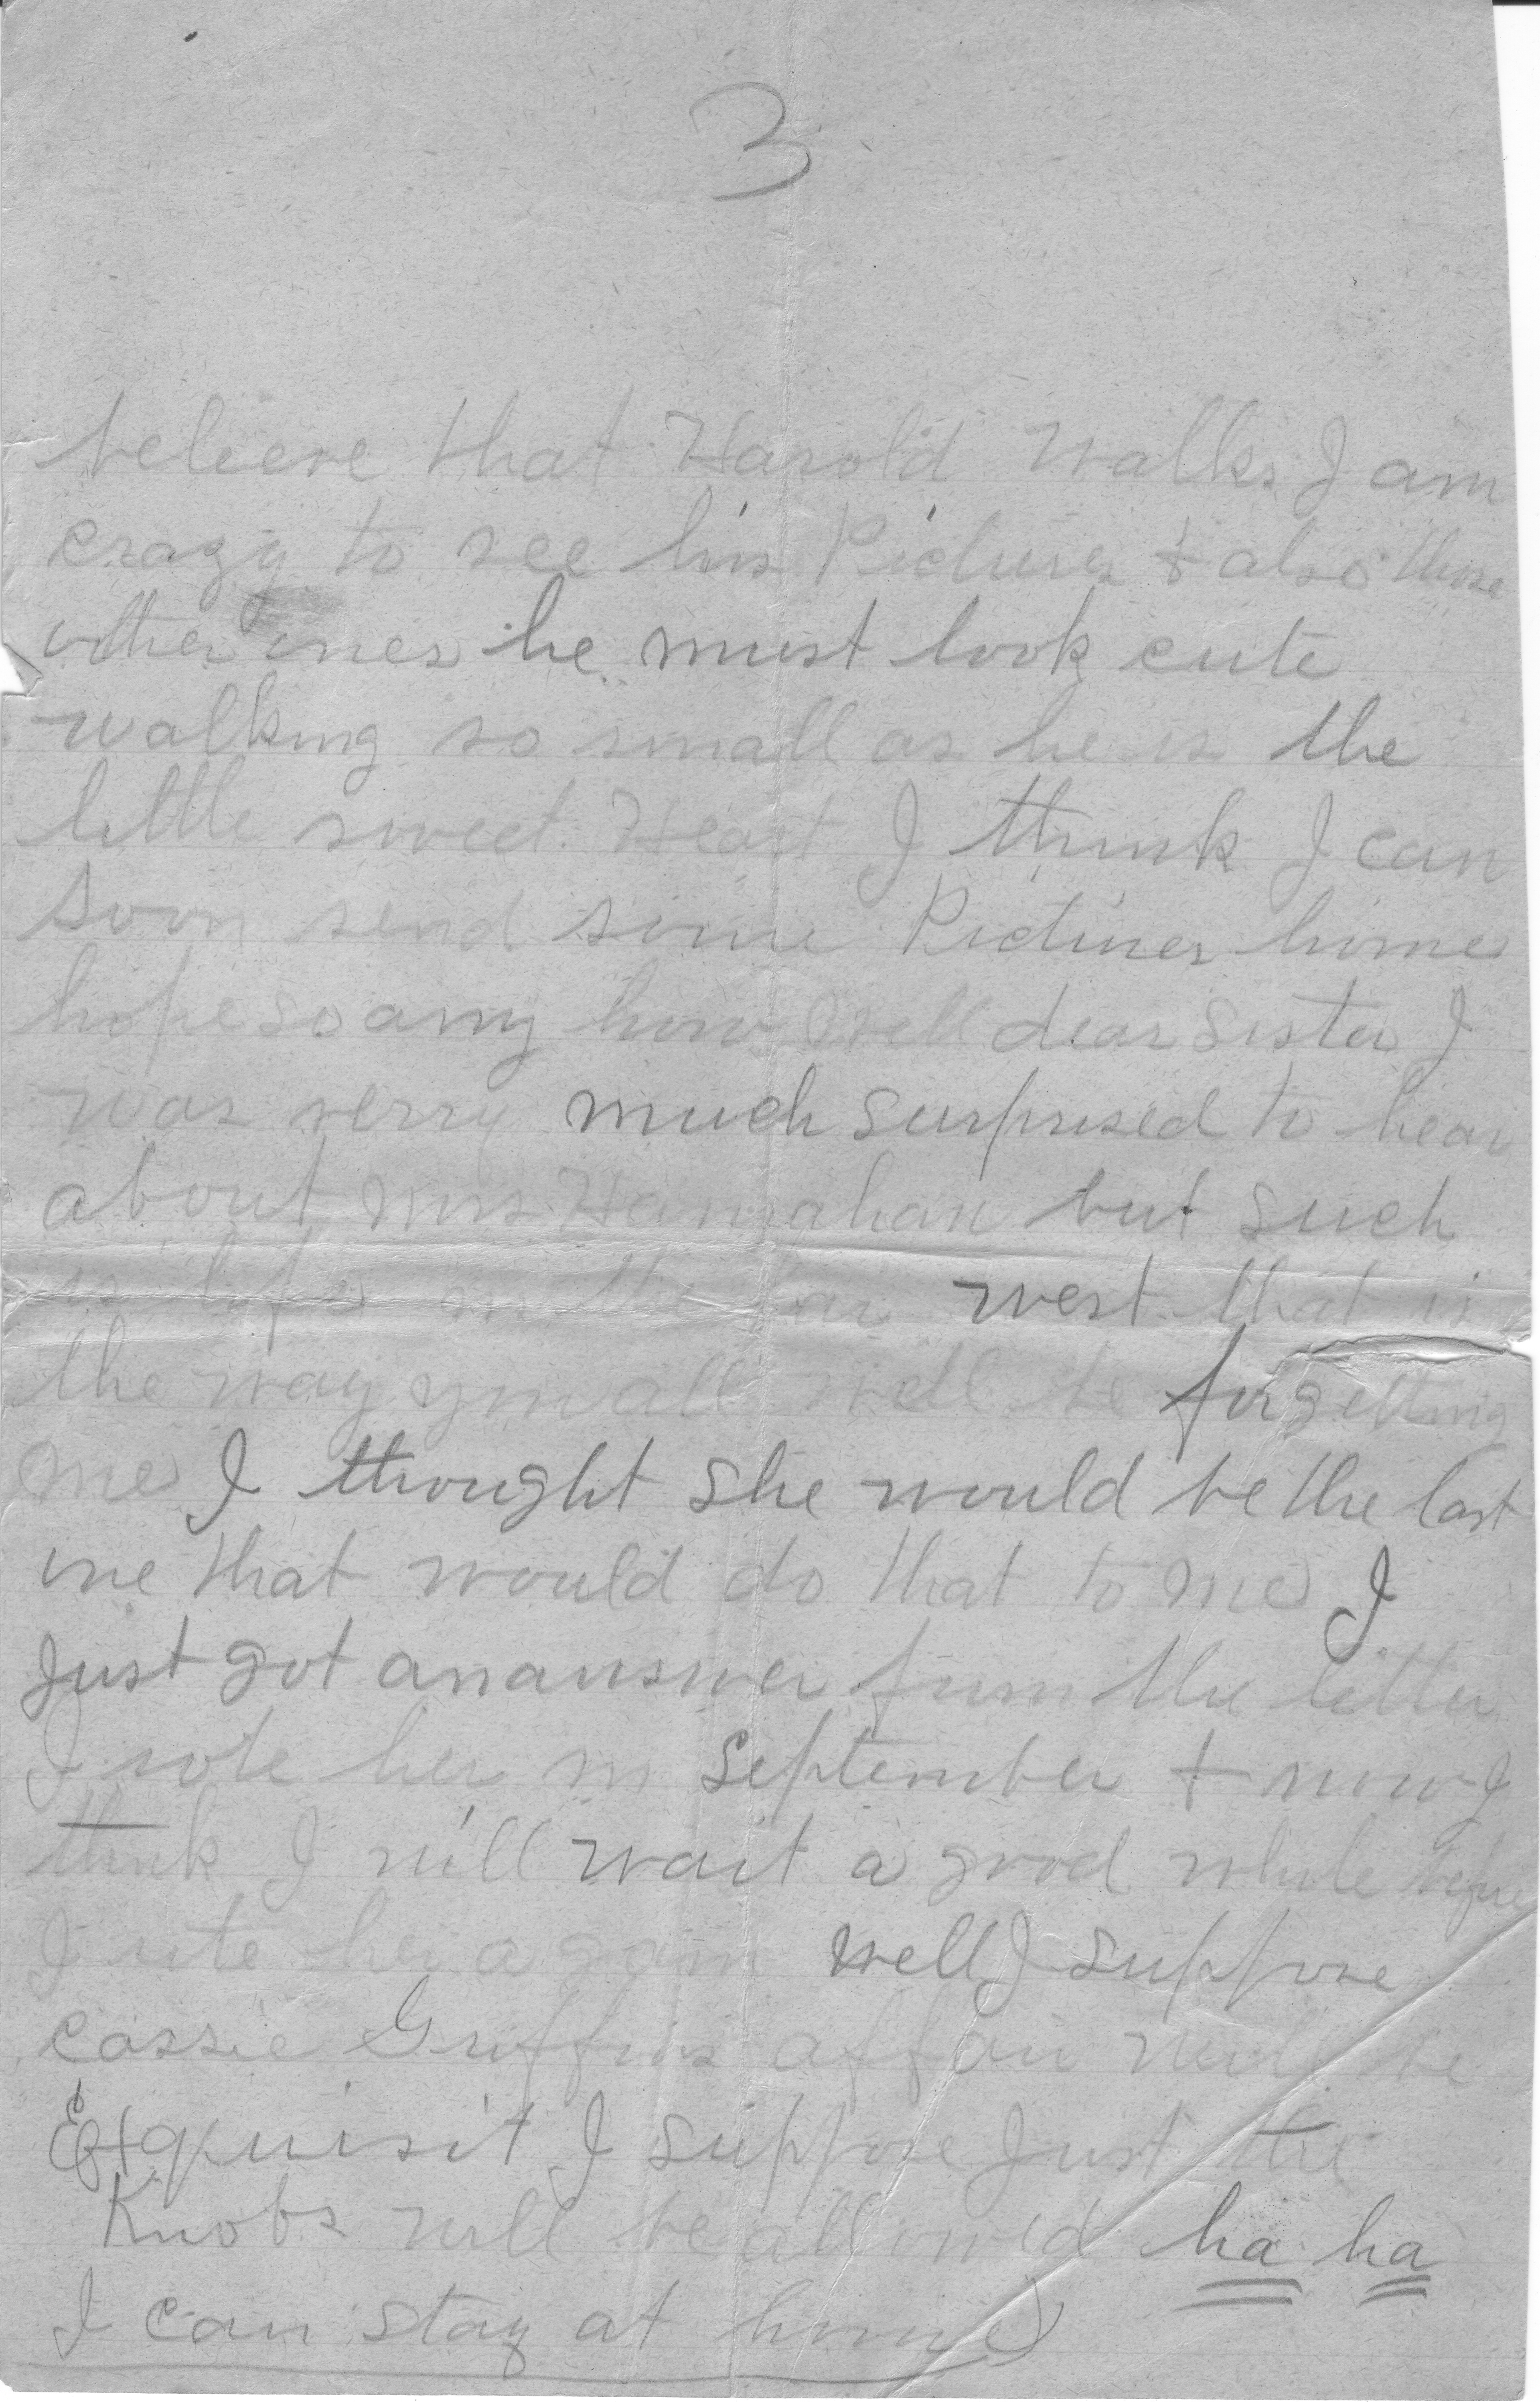 3
believe that Harold walks I am
crazy to see his Pictures + also those
other ones he must look cute
walking so small as he is the
little sweet Heart I think I can
soon send some Pictures home
hope so anny how well dear sister I
was verry much surprised to hear
about Mrs Hannahan but such
is life in the far west that is
the way you all will be forgetting
me I thought she would be the last
one that would do that to me I
just got an answer from the letter
I rote her in September + now I
think I will wait a good while before
I rite her again well I suppose
cassie Griffins affair will be
Exquisit I suppose just the
Knobs will be allowed ha ha
I can stay at home)